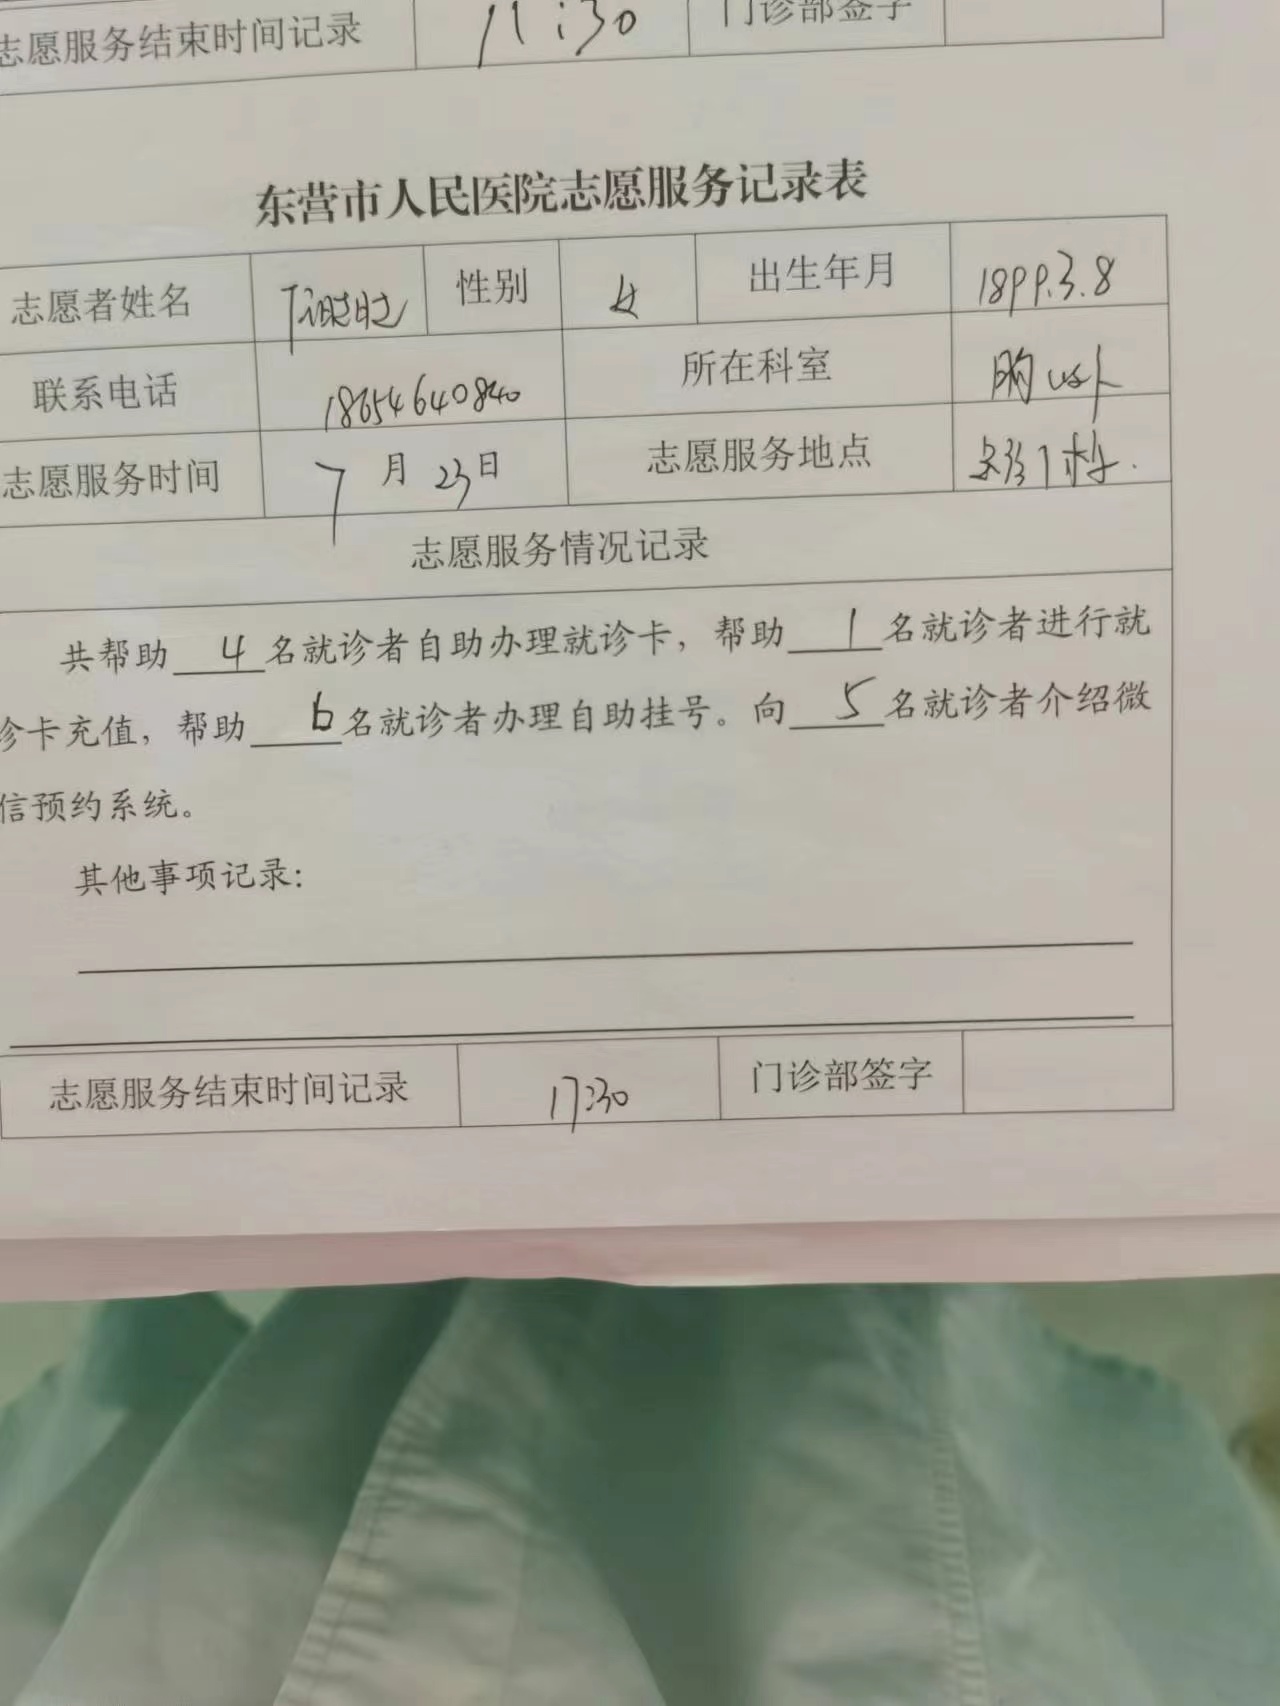 志愿服务结束时间记录 11:30 门诊部签字
东营市人民医院志愿服务记录表
志愿者姓名 性别 女 出生年月 1899.3.8
联系电话 18654640840 所在科室 胸外
志愿服务时间 7月23日 志愿服务地点
志愿服务情况记录
共帮助 4 名就诊者自助办理就诊卡，帮助 1 名就诊者进行就
诊卡充值，帮助 6 名就诊者办理自助挂号。向 5 名就诊者介绍微
信预约系统。
其他事项记录：
志愿服务结束时间记录 17:30 门诊部签字